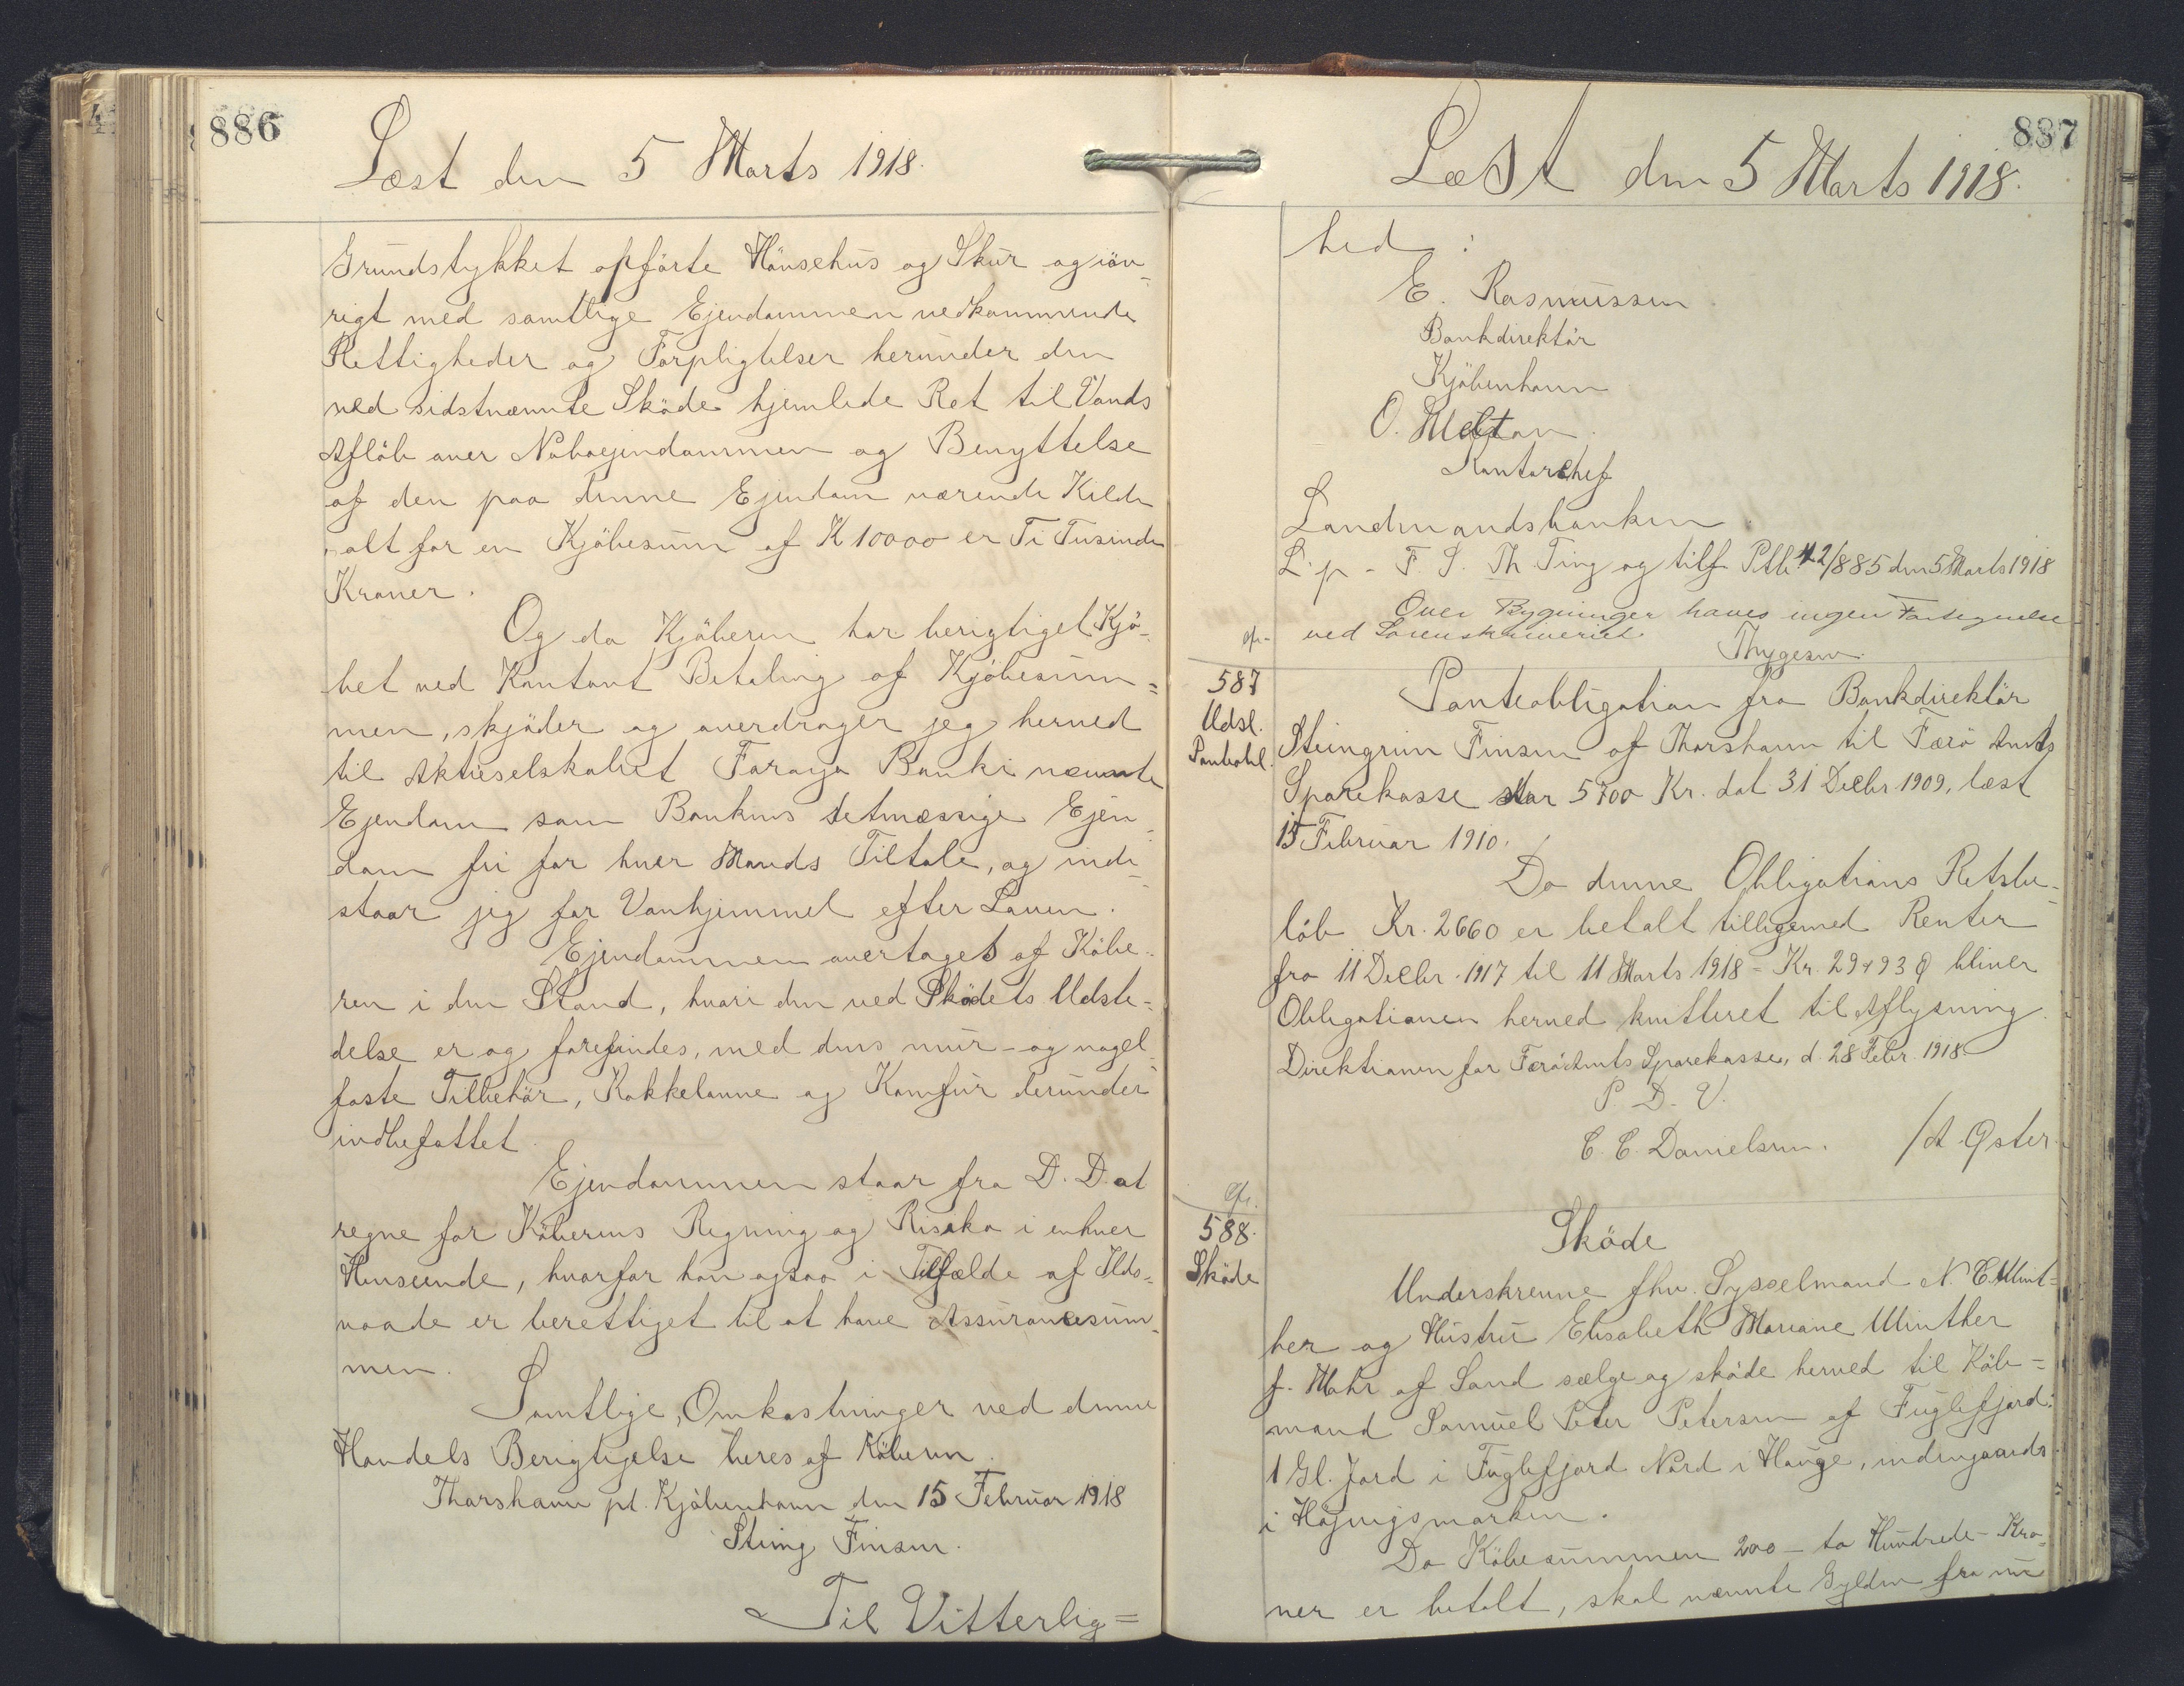 886
Læst den 5 Marts 1918.
Grundstykket opförte Hönsehus og Skur og iöv-
rigt med samtlige Ejendommen vedkommende
Rettigheder og Forpligtelser herunder den
ved sidstnævnte Sköde hjemlede Ret til Vands
Aflöb over Naboejendommen og Benyttelse
af den paa denne Ejendom værende Kilde
alt for en Kjöbesum af K 10000 er Ti Tusinde
Kroner.
Og da Kjöberen har berigtiget Kjö-
bet ved Kontant Betaling af Kjöbesum=
men, skjöder og overdrager jeg herved
til Aktieselskabet Föroya Banki nævnte
Ejendom som Bankens retmæssige Ejen-
dom fri for hver Mands Tiltale, og inde-
staar jeg for Vanhjemmel efter Loven.
Ejendommen overtages af Köbe-
ren i den Stand, hvori den ved Sködets Udste-
delse er og forefindes, med dens mur- og nagel-
faste Tilbehör, Kakkelovne og Komfur derunder
indbefattet.
Ejendommen staar fra D. D. at
regne for Köberens Regning og Risiko i enhver
Henseende, hvorfor han ogsaa i Tilfælde af Ilds-
vaade er berettiget til at hæve Assurancesum-
men.
Samtlige Omkostninger ved denne
Handels Berigtigelse beres af Köberen.
Thorshavn pt. Kjöbenhavn den 15 Februar 1918
Steing Finsen.
Til Vitterlig=
887
Læst den 5 Marts 1918.
hed:
E. Rasmussen
Bankdirektör
Kjöbenhavn
O.
Kontorchef
Landmandsbanken
L. p - F. S. Th. Ting og tilf Ptb. 42/885 den 5 Marts 1918
Over Bygninger haves ingen Fortegnelse
ved Sorenskriveriet.
Thygesen.
587
Udsl.
Panteobl.
Panteobligation fra Bankdirektör
Steingrim Finsen af Thorshavn til Færö Amts
Sparekasse stor 5700 Kr. dat 31 Decbr 1909, læst
15 Februar 1910.
Da denne Obligations Restbe-
löb Kr. 2660 er betalt tilligemed Renter
fra 11 Decbr. 1917 til 11 Marts 1918 = Kr. 29 93 Ø bliver
Obligationen herved kvitteret til Aflysning.
Direktionen for Færö Amts Sparekasse, d. 28 Febr. 1918
P. D. V.
C. C. Danielsen. / A. Öster.
588.
Sköde
Sköde
Underskrevne fhv. Sysselmand N. C. Wint-
her og Hustru Elisabeth Mariane Winther
f. Mohr af Sand sælge og sköde herved til Köb-
mand Samuel Peter Petersen af Fuglefjord:
1 Gl. Jord i Fuglefjord Nord i Hauge, indengaards
i Högnigsmarken.
Da Köbesummen 200 - to Hundrede - Kro-
ner er betalt, skal nævnte Gylden fra nu